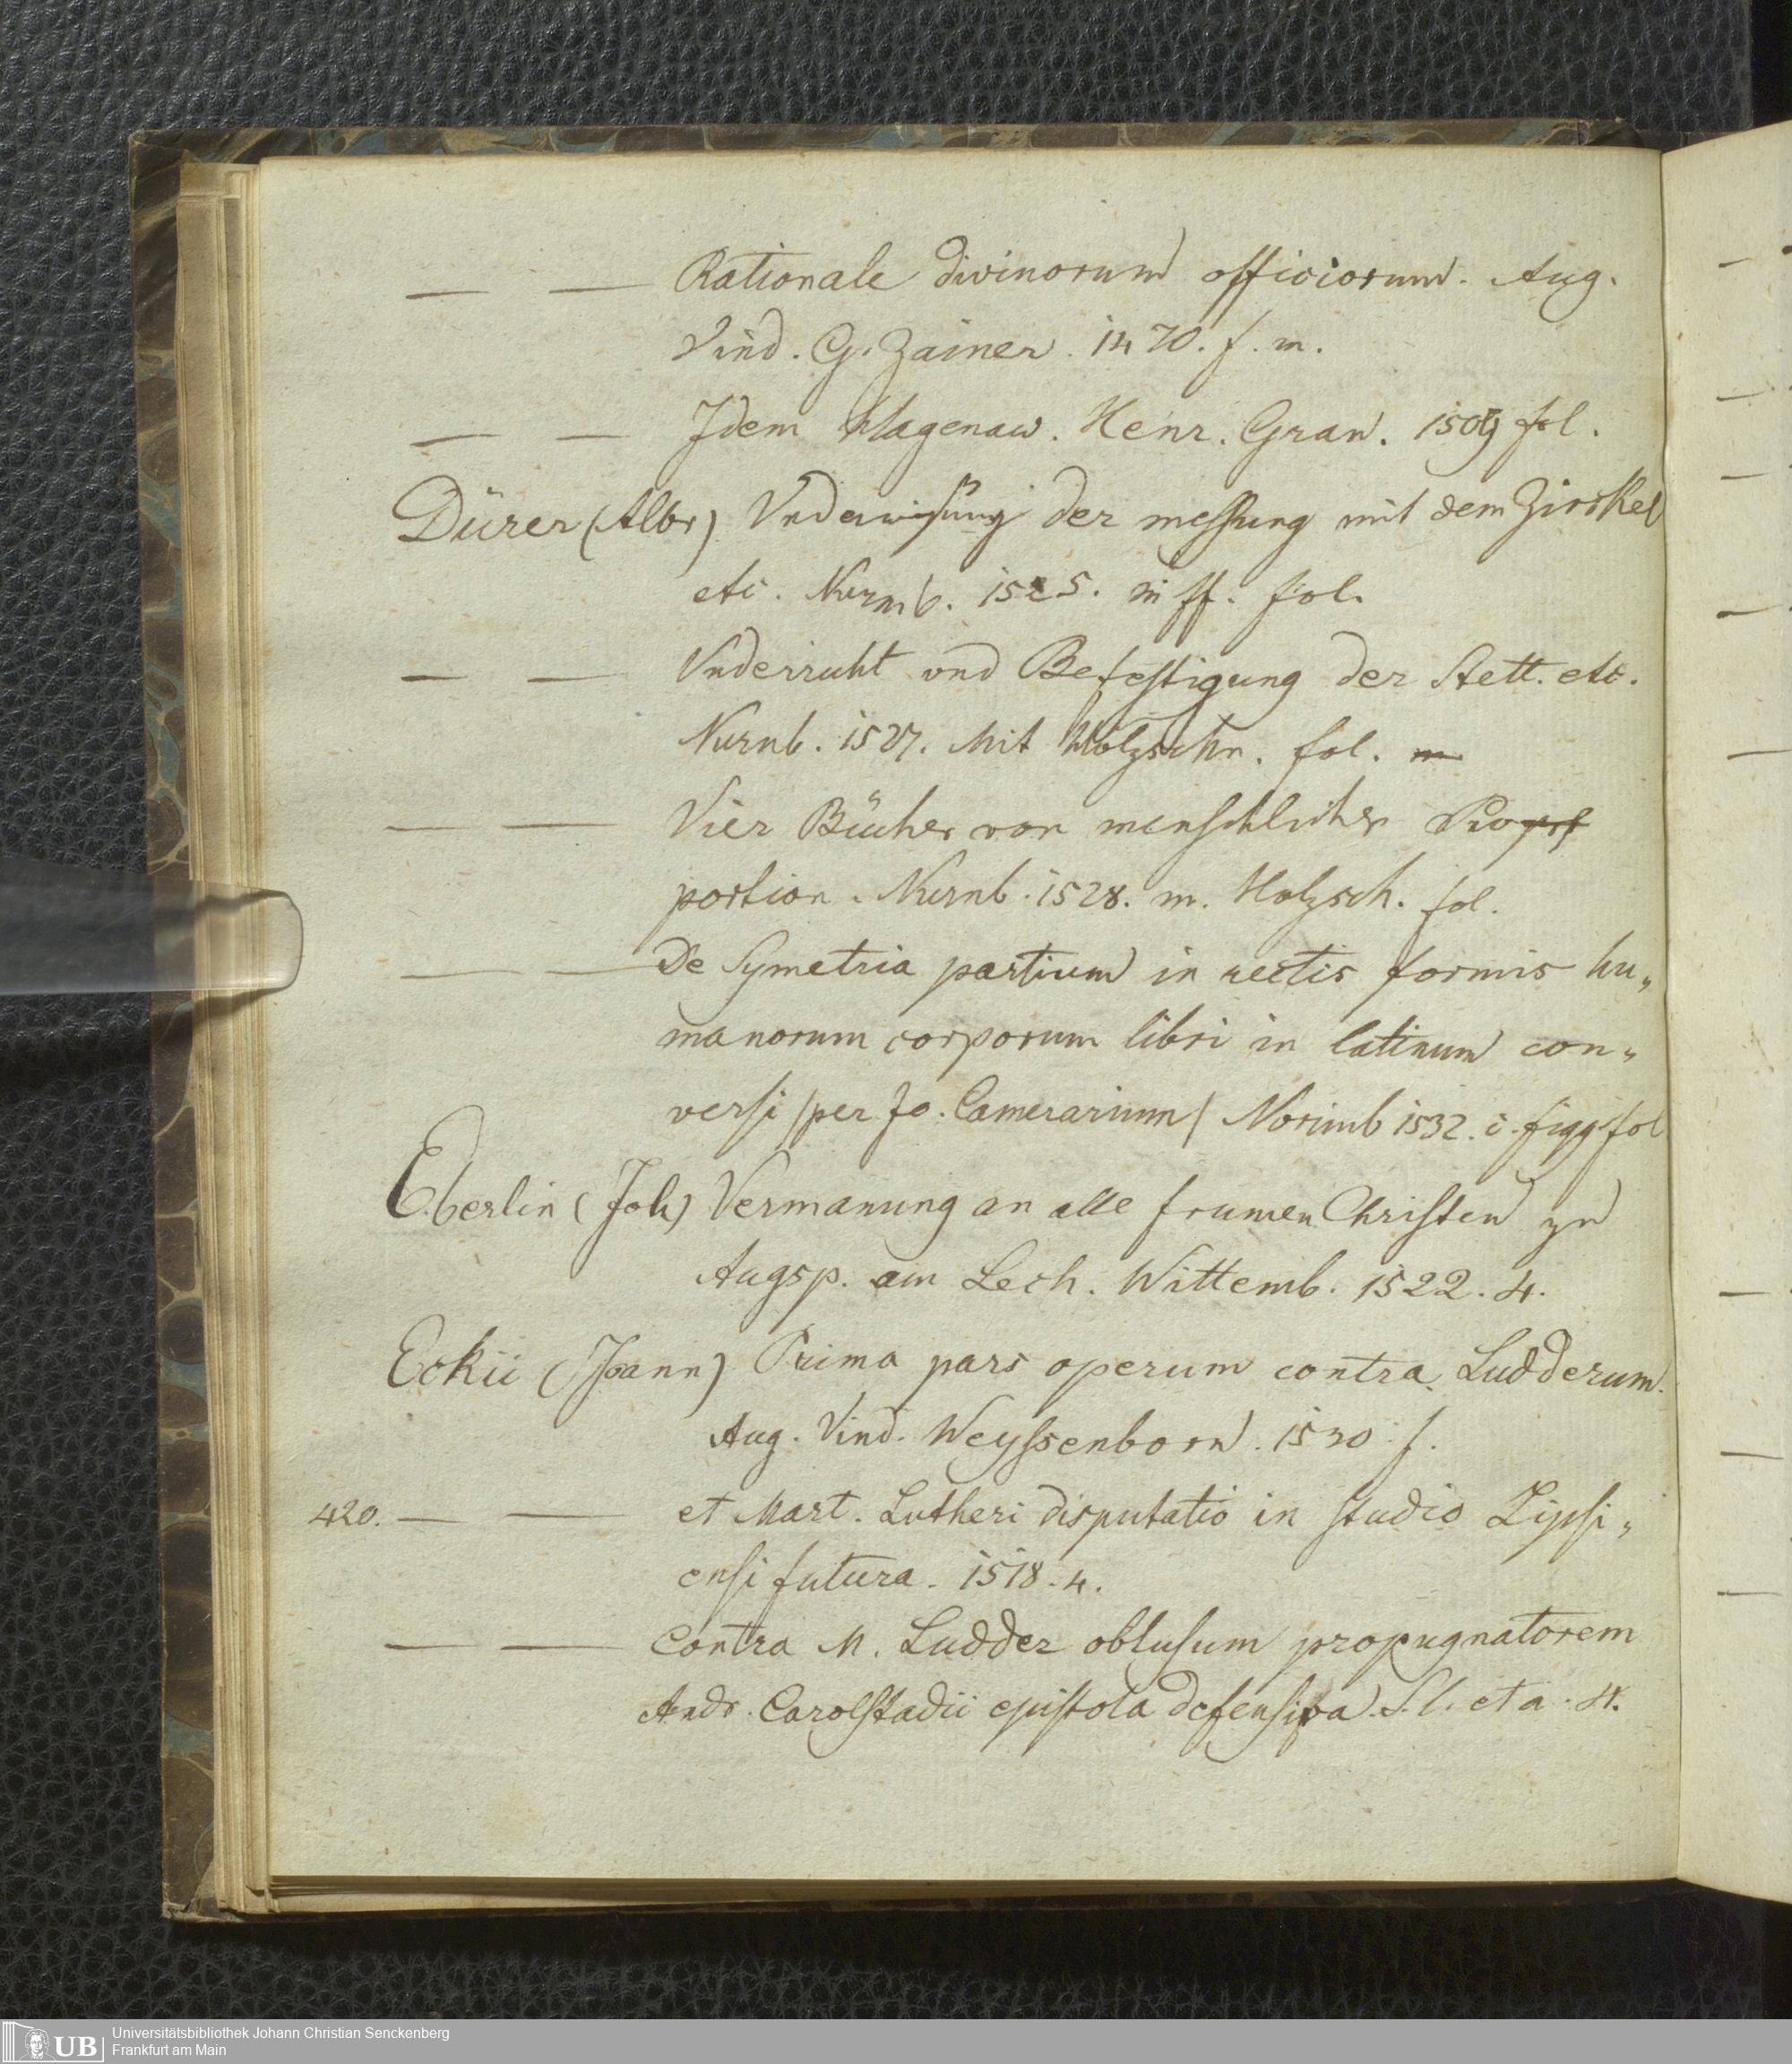 — — Rationale divinorum officiorum. Aug.
Vind. G. Zainer. 1470. f. m.
— — Idem Hagenaw. Henr. Gran. 1509 fol.
Dürer (Albr) Vnderwisung der messung mit dem Zirckel
etc. Nurmb. 1525. m ff. fol.
— — Vnderricht vnd Befestigung der Stett. etc.
Nurnb. 1527. Mit Holzschn. fol.
— — Vier Bücher von menschlicher Pro
portion. Nurnb. 1528. m. Holzsch. fol.
— — De Symetria partium in rectis formis hu„
manorum corporum libri in latinum con„
versi /per Jo. Camerarium/ Norimb 1532. c. figg fol
Eberlin (Joh) Vermanung an alle frumen Christen zu
Augsp. am Lech. Wittemb. 1522. 4.
Eckii (Joann) Prima pars operum contra Ludderum.
Aug. Vind. Weyssenborn. 1530. f.
420. — — et Mart. Lutheri disputatio in studio Lipsi„
ensi futura. 1518. 4.
— — Contra M. Ludder obtusum propugnatorem
Andr. Carolstadii epistola defensiva. S. l. et a. 4.
UB
Universitätsbibliothek Johann Christian Senckenberg
Frankfurt am Main